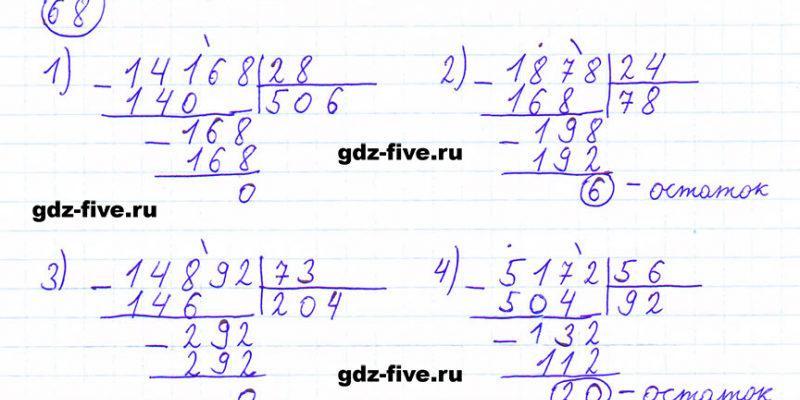 68
1) - 14168 | 28    2) - 1878 | 24
140 | 506    168 | 78
- 168    - 198
168    gdz-five.ru    192
0    6 - остаток
gdz-five.ru
3) - 14892 | 73    4) - 5172 | 56
146 | 204    504 | 92
- 292    - 132
292    112
0    gdz-five.ru    20 - остаток